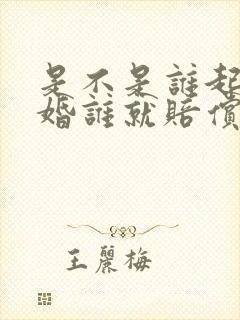 是不是誰起
婚誰就賠償
王麗梅